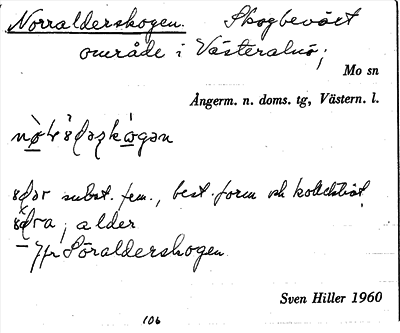 Norralderskogen. Skogbevuxet
område i Västeralnö;
Mo sn
Ångerm. n. doms. tg, Västern. l.
subst. fem., best. form och kollektivt
alder
– Jfr Söralderskogen
Sven Hiller 1960
106